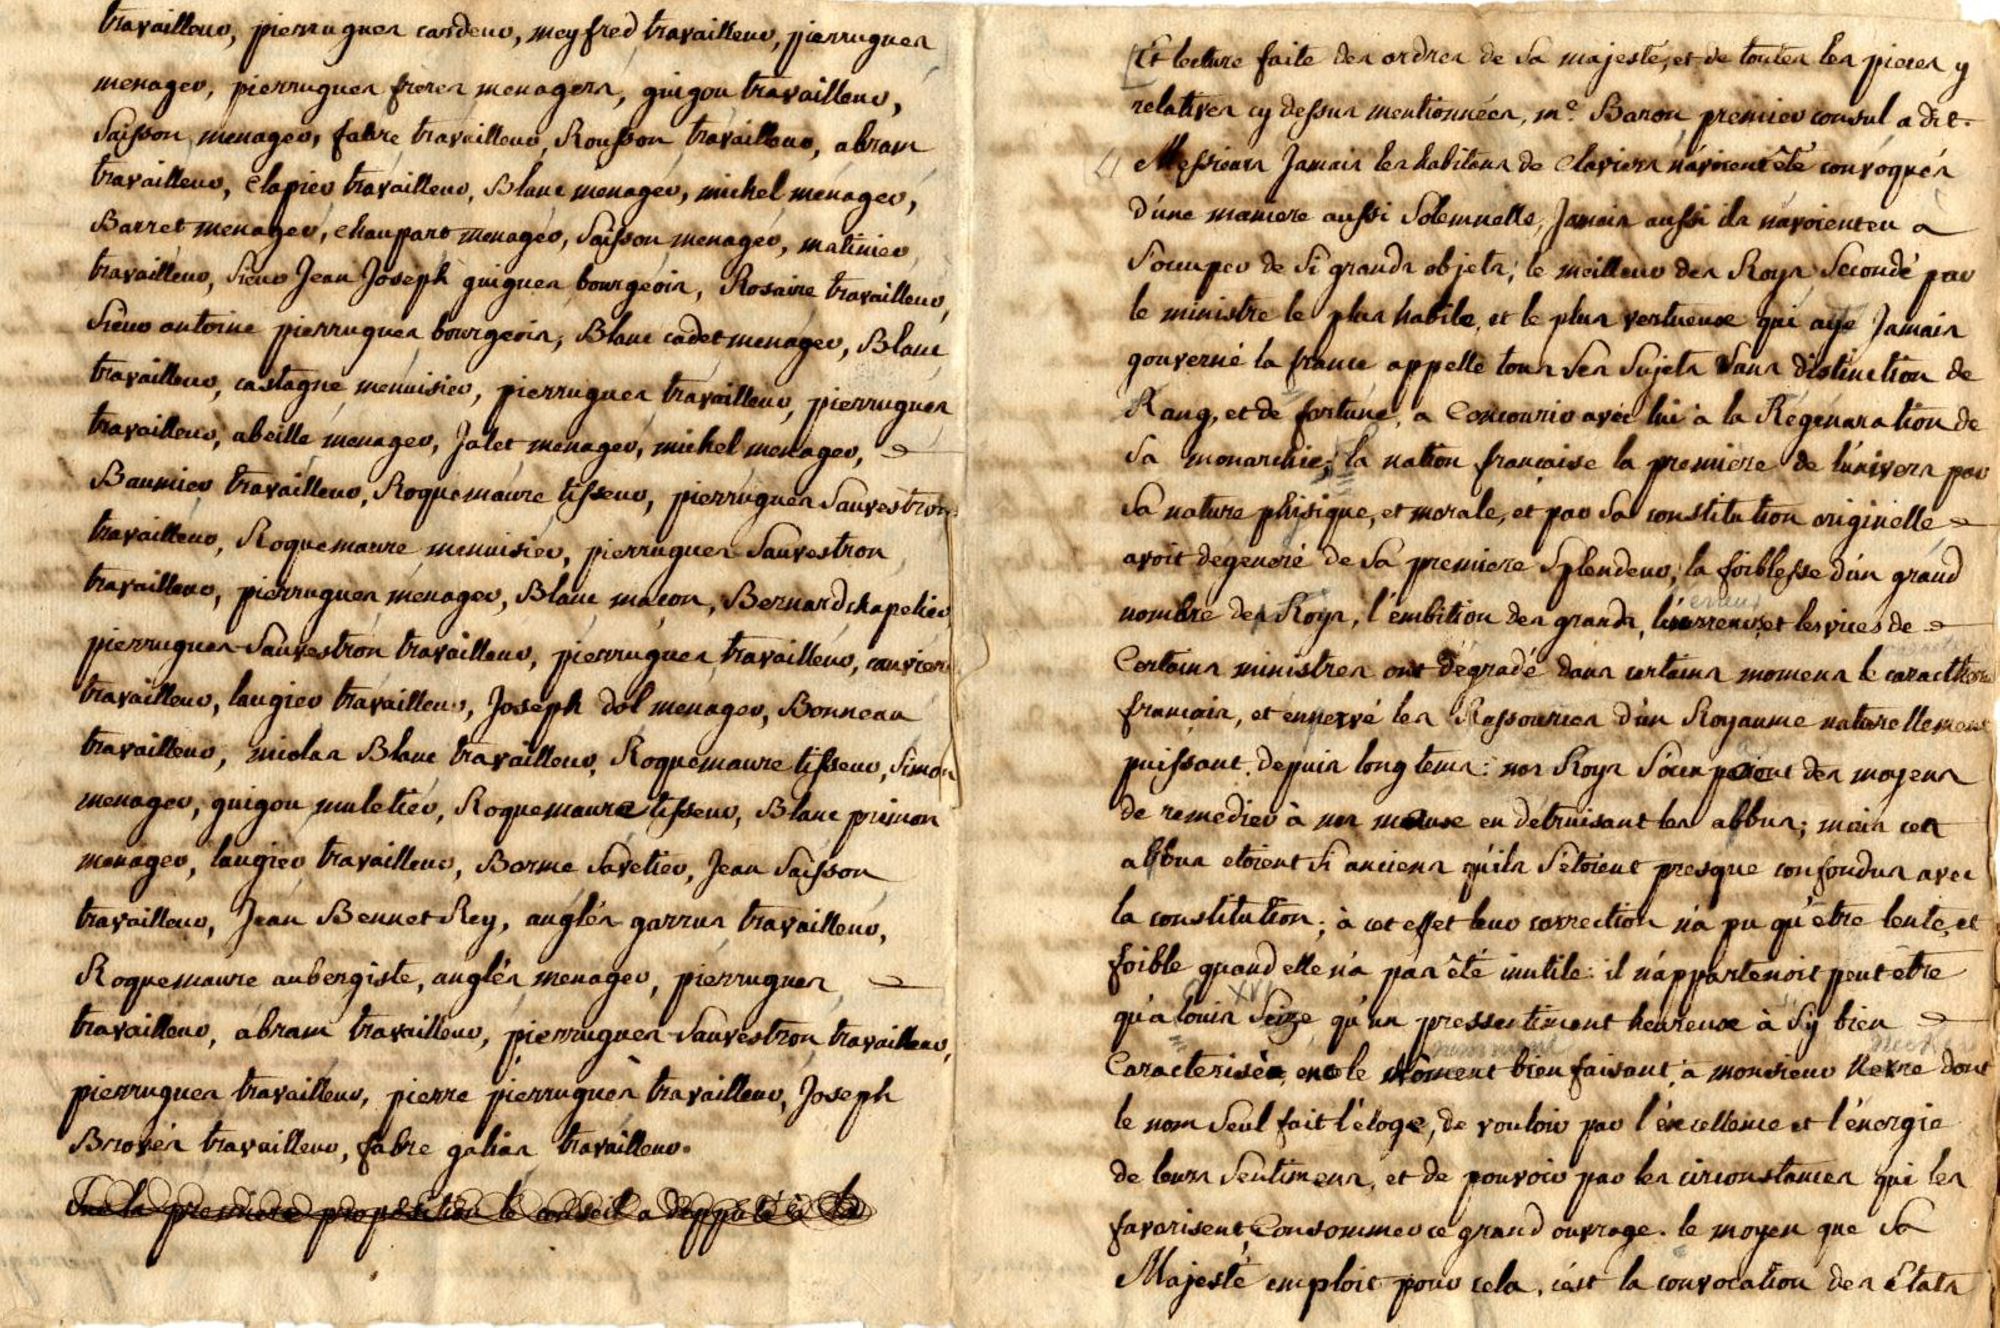 travailleur, pierrugues cardeur, meyfred travailleur, pierrugues
menager, pierrugues freres menagers, guigou travailleur,
Saisson menager, fabre travailleur, Rousson travailleur, abram
travailleur, Clapier travailleur, Blanc menager, michel menager,
Barret menager, chaupart menager, Saisson menager, matinier
travailleur, Sieur Jean Joseph guigues bourgeois, Rosaire travailleur,
Sieur antoine pierrugues bourgeois, Blanc cadet menager, Blanc
travailleur, castagne menuisier, pierrugues travailleur, pierrugues
travailleur, abeille menager, Jalet menager, michel menager,
Baumier travailleur, Roquemaure tisseur, pierrugues Sauvestron
travailleur, Roquemaure menuisier, pierrugues Sauvestron
travailleur, pierrugues menager, Blanc maçon, Bernard chapelier
pierrugues-Sauvestron travailleur, pierrugues travailleur, cauvier
travailleur, laugier travailleur, Joseph dol menager, Bonneau
travailleur, nicolas Blanc travailleur, Roquemaure tisseur, Simon
menager, guigou muletier, Roquemaure tisseur, Blanc primon
menager, laugier travailleur, Borme Savetier, Jean Saisson
travailleur, Jean Bennet Rey, anglés garrus travailleur,
Roquemaure aubergiste, anglés menager, pierrugues
travailleur, abram travailleur, pierrugues-Sauvestron travailleur,
pierrugues travailleur, pierre pierrugues travailleur, Joseph
Brovés travailleur, fabre galias travailleur.
Sur la premiere proposition le conseil a depputé à
Et lecture faite des ordres de Sa majesté, et de toutes les pieces y
relatives cy dessus mentionnées, me. Baron premier consul a dit.
Messieurs Jamais les habitans de Claviers n'avoient été convoqués
d'une maniere aussi Solemnelle, Jamais aussi ils n'avoient eu a
S'occuper de Si grands objets; le meilleur des Roys Secondé par
le ministre le plus habile, et le plus vertueux qui aye Jamais
gouverné la france appelle tous Ses Sujets Sans distinction de
Rang, et de fortune, a Concourir avéc lui à la Régénaration de
Sa monarchie; la nation française la premiere de l'univers par
Sa nature phisique, et morale, et par Sa constitution originelle
avoit dégeneré de Sa premiere Splendeur, la foiblesse d'un grand
nombre des Roys, l'embition des grands, l'erreur, et les vices de
Certains ministres ont dégradé dans certains momens le caracthere
français, et ennervé les Ressources d'un Royaume naturellement
puissant. depuis long tems: nos Roys S'occupoient des moyens
de remedier à nos maux en detruisant les abbus; mais ces
abbus etoient Si anciens qu'ils S'étoient presque confondus avec
la constitution; à cet effet leur correction n'a pu qu'être lente, et
foible quand elle n'a pas été inutile: il n'appartenoit peut être
qu'a louis Seize qu'un pressentiment heureux à Sy bien
Caracterisé, et le moment bien faisant, à monsieur Nekre dont
le nom Seul fait l'éloge, de vouloir par l'éxcellence et l'énergie
de leurs Sentimens, et de pouvoir par les circonstances qui les
favorisent, Consommer ce grand ouvrage. le moyen que Sa
Majesté emploit pour cela, c'est la convocation des États